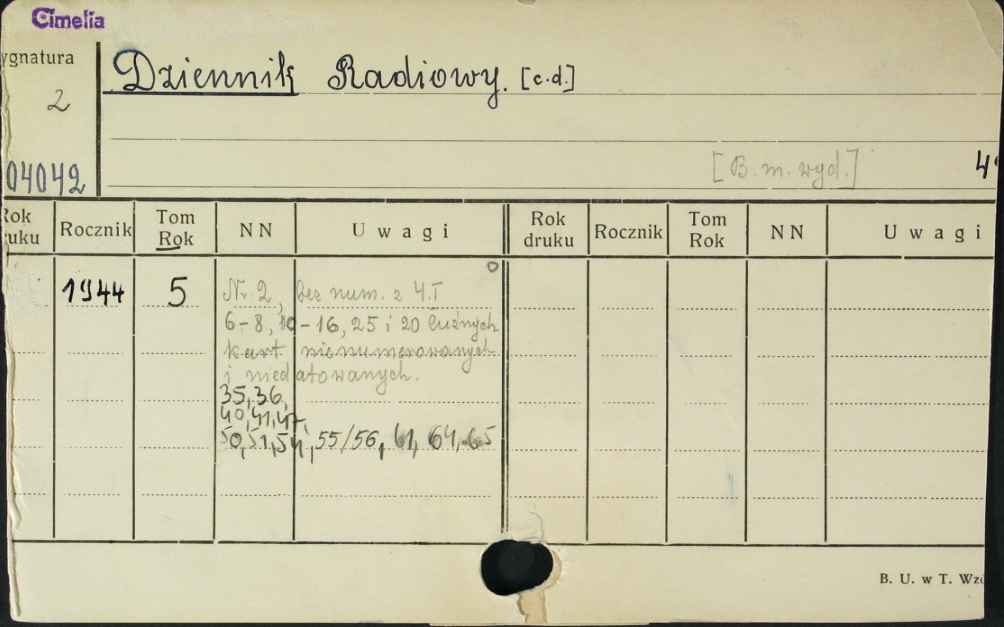 Cimelia
ygnatura
2
Dziennik Radiowy. [c.d.]
04042
[B. m. wyd.]
Rok
ruku
Rocznik
Tom
Rok
NN
Uwagi
Rok
druku
Rocznik
Tom
Rok
NN
Uwagi
1944
5
Nr 2, bez num. z 4.I
6-8, 10-16, 25 i 20 luźnych
kart nienumerowanych
i niedatowanych.
35, 36,
40, 41, 47,
50, 51, 54, 55/56, 61, 64, 65
B. U. w T.